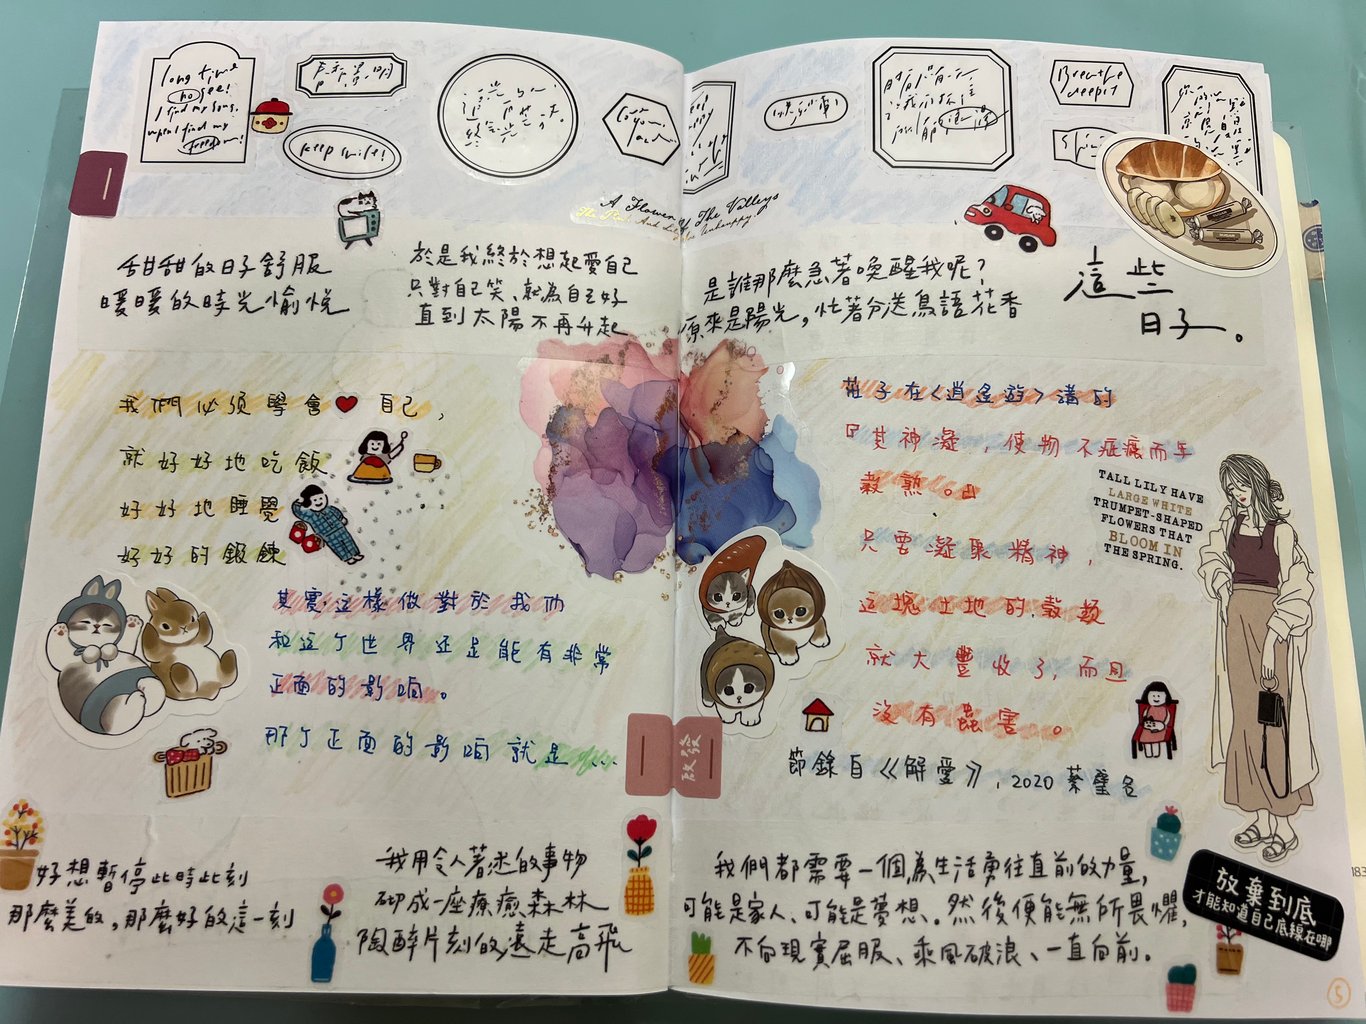 long time
no see!
I find my song,
when I find my
freedom!
keep smile!
Breathe
deeper
A Flower Of The Valleys
甜甜的日子舒服
暖暖的時光愉悅
於是我終於想起愛自己
只對自己笑、就為自己好
直到太陽不再升起
是誰那麼急著喚醒我呢?
原來是陽光,忙著分送鳥語花香
這些
日子。
我們必須學會❤自己,
就好好地吃飯
好好地睡覺
好好的鍛鍊
其實這樣做對於我们
和这个世界还是能有非常
正面的影响。
那个正面的影响就是...
啟發
莊子在〈逍遙遊〉講的
『其神凝,使物不疵癘而年
穀熟。』
只要凝聚精神,
这塊土地的穀類
就大豐收了,而且
沒有蟲害。
節錄自《解愛》,2020 蔡璧名
TALL LILY HAVE
LARGE WHITE
TRUMPET-SHAPED
FLOWERS THAT
BLOOM IN
THE SPRING.
好想暫停此時此刻
那麼美的,那麼好的這一刻
我用令人著迷的事物
砌成一座療癒森林
陶醉片刻的遠走高飛
我們都需要一個為生活勇往直前的力量,
可能是家人、可能是夢想.然後便能無所畏懼,
不向現實屈服、乘風破浪、一直向前.
放棄到底
才能知道自己底線在哪
5